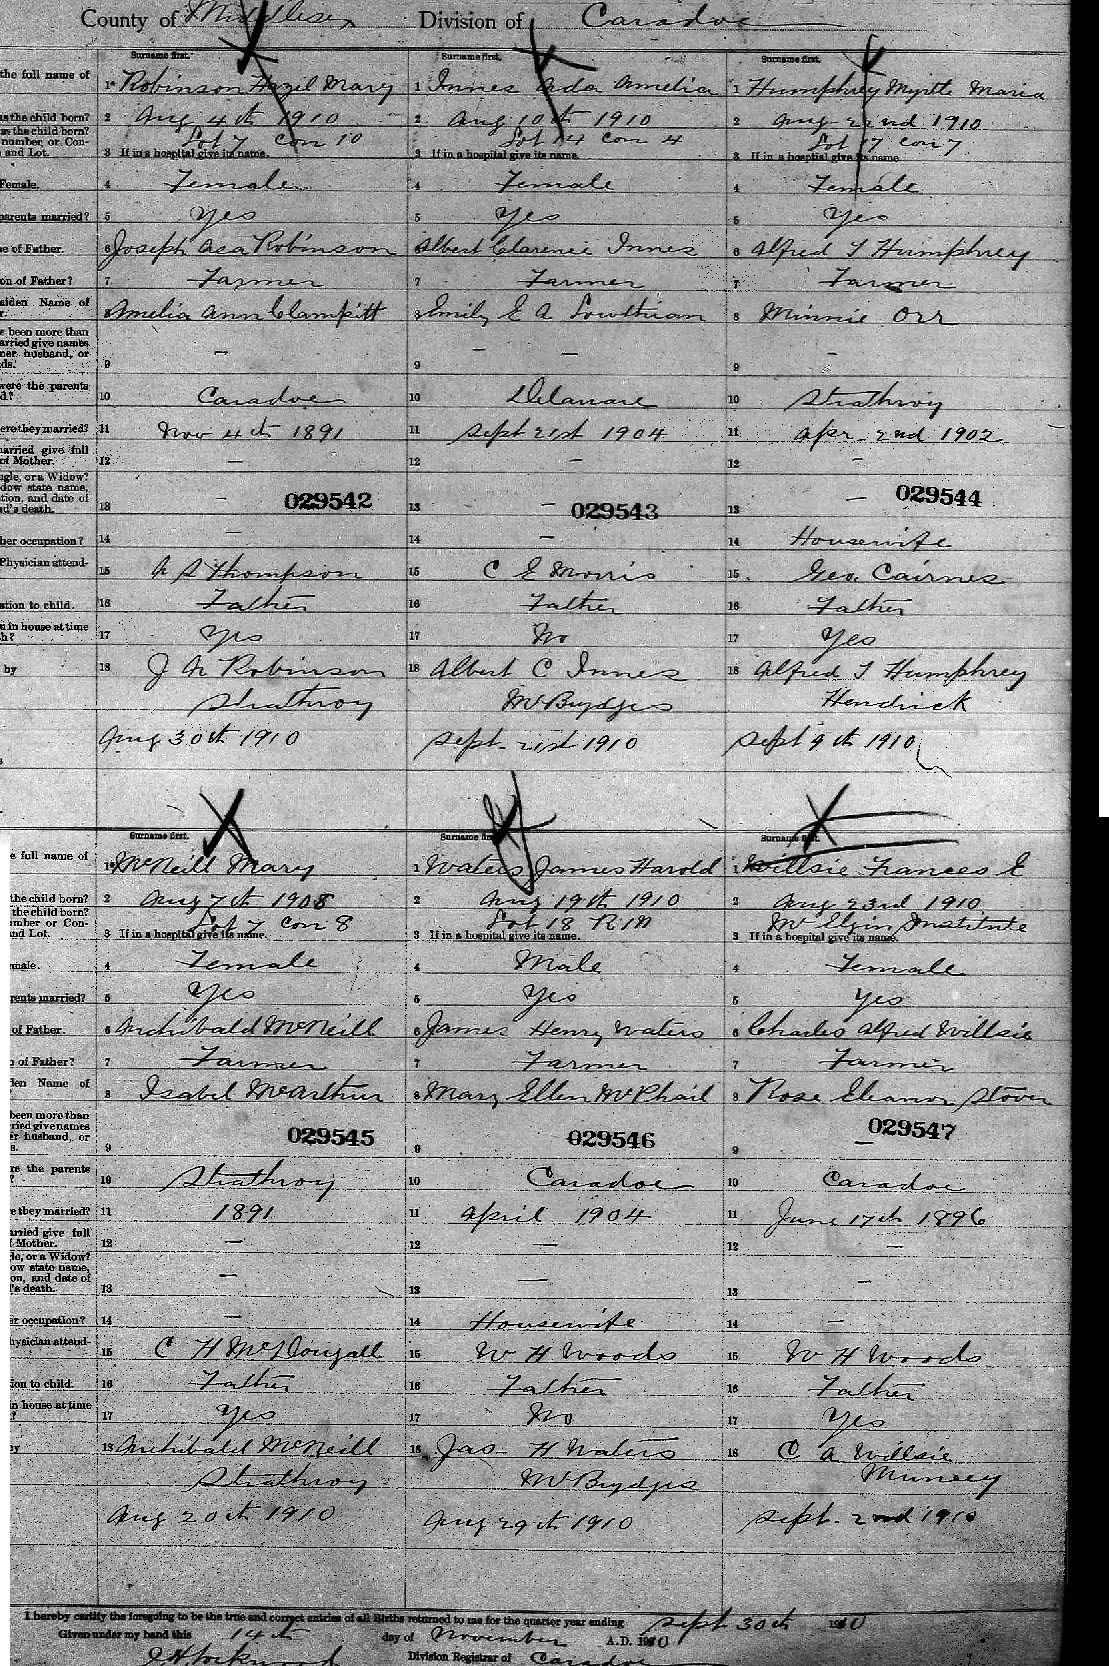 County of Middlesex Division of Caradoc
Surname first. Surname first. Surname first.
the full name of 1 Robinson Hazel Mary 1 Innes Ada Amelia 1 Humphrey Myrtle Maria
as the child born? 2 Aug 4th 1910 2 Aug 10th 1910 2 Aug 22nd 1910
as the child born? Lot 7 con 10 Lot 4 con 4 Lot 17 con 7
number, or Con-
and Lot. 3 If in a hospital give its name. 3 If in a hospital give its name. 3 If in a hospital give its name
Female. 4 Female 4 Female 4 Female
parents married? 5 Yes 5 Yes 5 Yes
e of Father. 6 Joseph Asa Robinson Albert Clarence Innes 6 Alfred T Humphrey
on of Father? 7 Farmer 7 Farmer 7 Farmer
aiden Name of
r. Amelia Ann Clampitt 8 Emily E A Lowthian 8 Minnie Orr
s been more than
arried give names
ner husband, or
ds. 9 — 9 — — 9 —
were the parents
d? 10 Caradoc 10 Delaware 10 Strathroy
ere they married? 11 Nov 4th 1891 11 Sept 21st 1904 11 Apr 2nd 1902
married give full
of Mother. 12 — 12 — 12 —
gle, or a Widow?
dow state name,
tion, and date of
d's death. 13 — 029542 13 — 029543 13 — 029544
her occupation? 14 — 14 — 14 Housewife
Physician attend-
15 A S Thompson 15 C E Morris 15 Geo. Cairnes
ation to child. 16 Father 16 Father 16 Father
u in house at time
h? 17 Yes 17 No 17 Yes
by 18 J A Robinson 18 Albert C Innes 18 Alfred T Humphrey
Strathroy Mt Brydges Hendrick
Aug 30th 1910 Sept. 21st 1910 Sept 9th 1910
Surname first. Surname first. Surname first.
e full name of 1 McNeill Mary 1 Waters James Harold 1 Willsie Frances E
the child born? 2 Aug 7th 1908 2 Aug 19th 1910 2 Aug 23rd 1910
the child born? Lot 7 con 8 Lot 18 R 1 N Mt Elgin Institute
mber or Con-
nd Lot. 3 If in a hospital give its name. 3 If in a hospital give its name. 3 If in a hospital give its name.
male. 4 Female 4 Male 4 Female
rents married? 5 Yes 5 Yes 5 Yes
of Father. 6 Archibald McNeill 6 James Henry Waters 6 Charles Alfred Willsie
of Father? 7 Farmer 7 Farmer 7 Farmer
den Name of
8 Isabel McArthur 8 Mary Ellen McPhail 8 Rose Eleanor Stover
been more than
ried give names
er husband, or
s. 9 029545 9 029546 9 — 029547
re the parents
? 10 Strathroy 10 Caradoc 10 Caradoc
e they married? 11 1891 11 April 1904 11 June 17th 1896
arried give full
f Mother. 12 — 12 — 12 —
le, or a Widow?
ow state name,
on, and date of
's death. 13 — 13 — 13 —
er occupation? 14 — 14 Housewife 14 —
hysician attend-
15 C H McDougall 15 W H Woods 15 W H Woods
ion to child. 16 Father 16 Father 16 Father
n house at time
? 17 Yes 17 No 17 Yes
by 18 Archibald McNeill 18 Jas H Waters 18 C A Willsie
Strathroy Mt Brydges Muncey
Aug 20th 1910 Aug 29th 1910 Sept. 2nd 1910
I hereby certify the foregoing to be the true and correct entries of all Births returned to me for the quarter year ending Sept 30th 1910
Given under my hand this 14th day of November A.D. 1910
Division Registrar of Caradoc